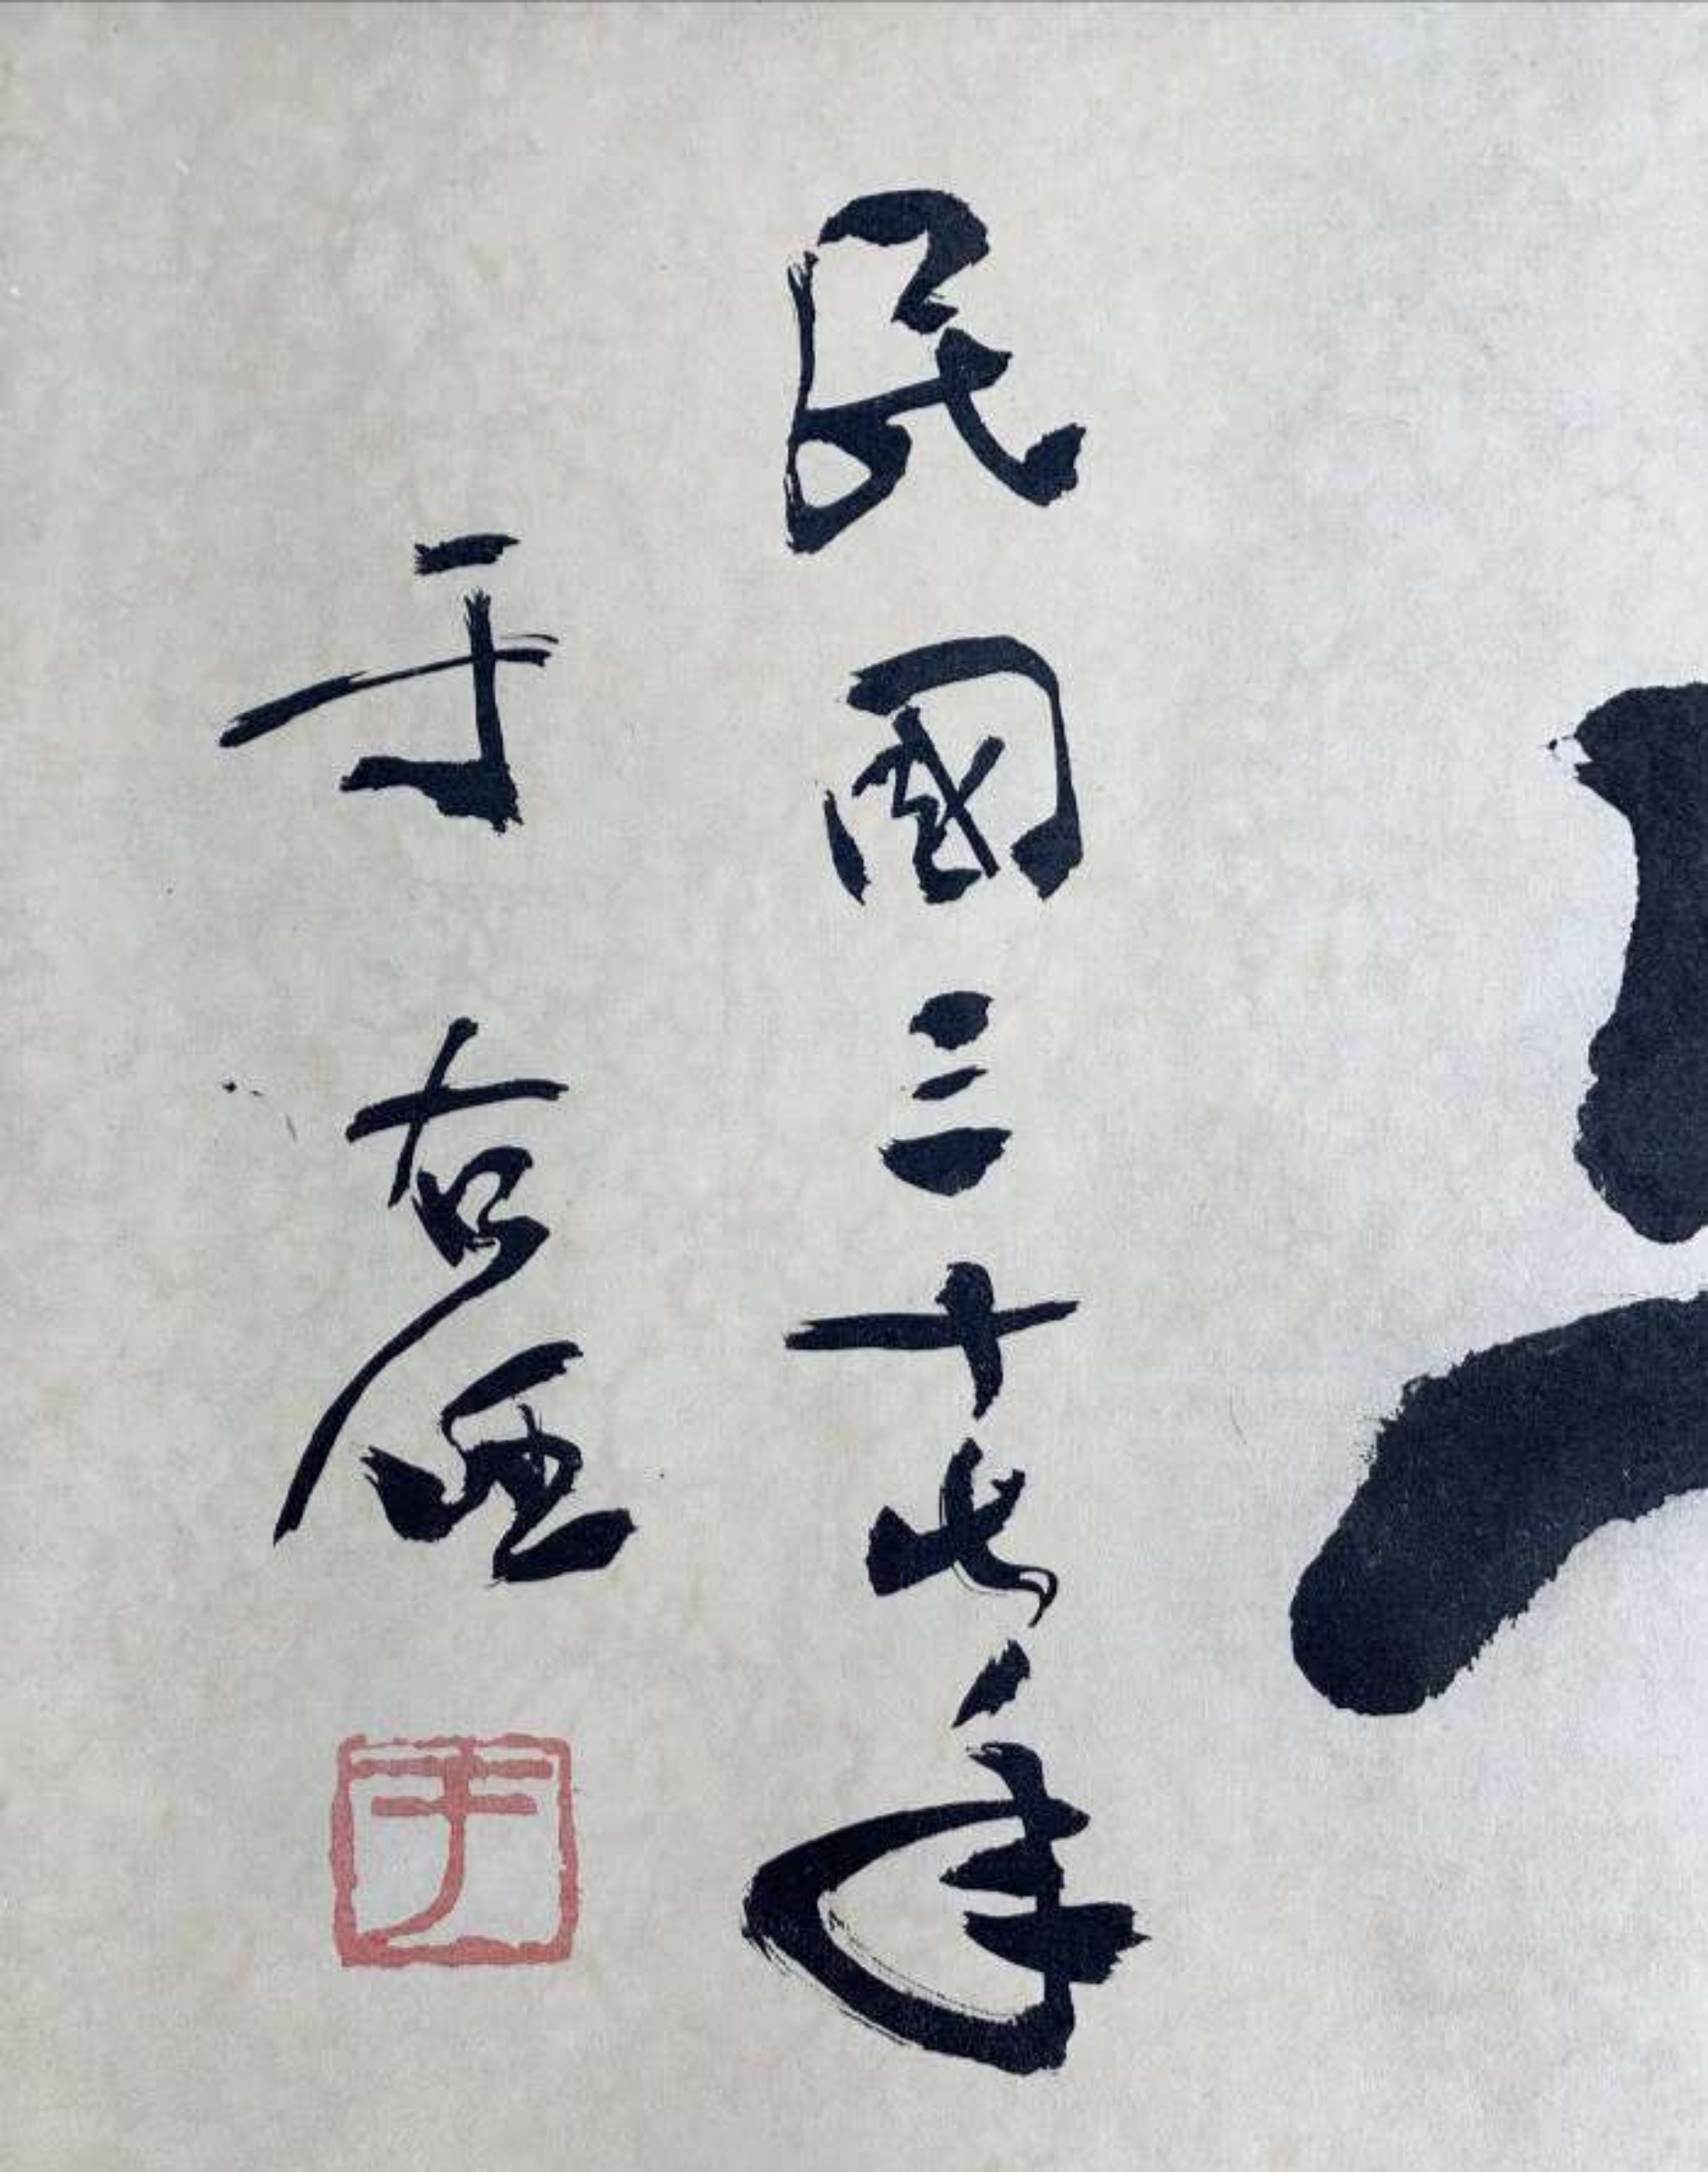 民國三十七年
于右任
于